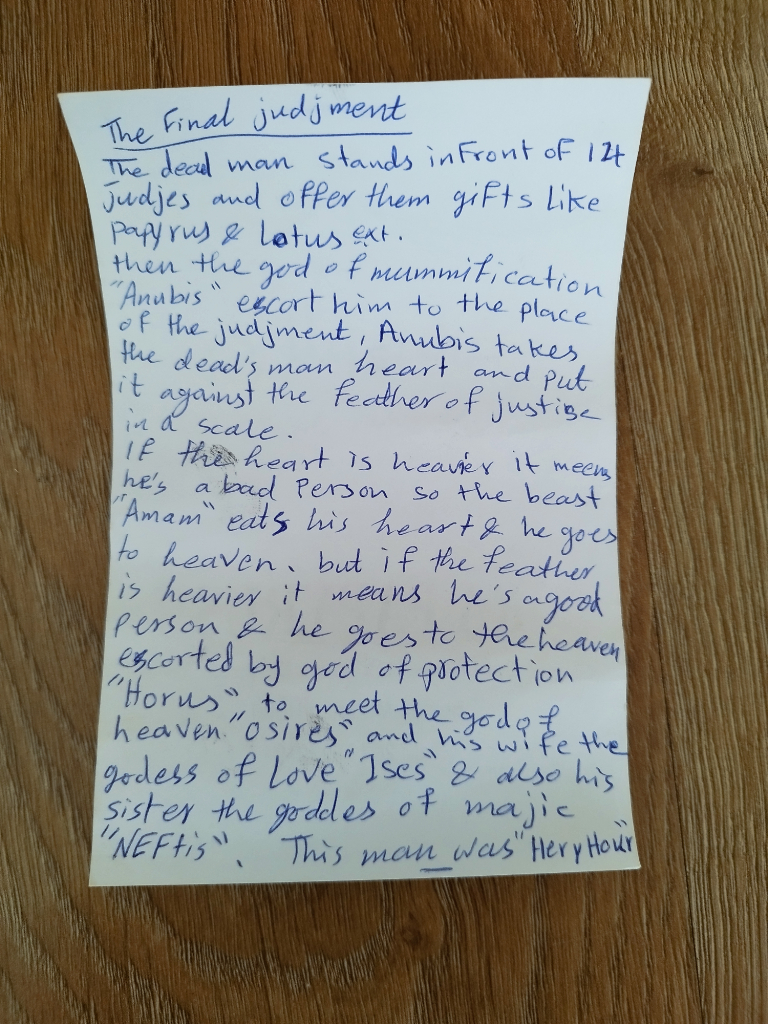 The Final judjment
The dead man stands infront of 14
judjes and offer them gifts like
papyrus & Lotus ext.
then the god of mummification
"Anubis" escort him to the place
of the judjment, Anubis takes
the dead's man heart and put
it against the feather of justise
in a scale.
If the heart is heavier it meens
he's a bad Person so the beast
"Amam" eats his heart & he goes
to heaven. but if the feather
is heavier it means he's a good
person & he goes to the heaven
escorted by god of protection
"Horus" to meet the god of
heaven "osires" and his wife the
godess of Love "Ises" & also his
sister the goddes of majic
"NEFtis". This man was "Hery Hour"